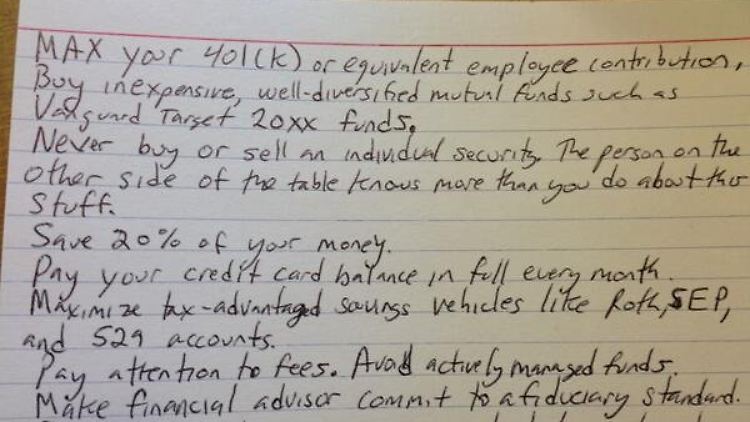 MAX your 401(k) or equivalent employee contribution,
Buy inexpensive, well-diversified mutual funds such as
Vanguard Target 20XX funds.
Never buy or sell an individual security. The person on the
other side of the table knows more than you do about this
stuff.
Save 20% of your money.
Pay your credit card balance in full every month.
Maximize tax-advantaged savings vehicles like Roth, SEP,
and 529 accounts.
Pay attention to fees. Avoid actively managed funds.
Make financial advisor commit to a fiduciary standard.